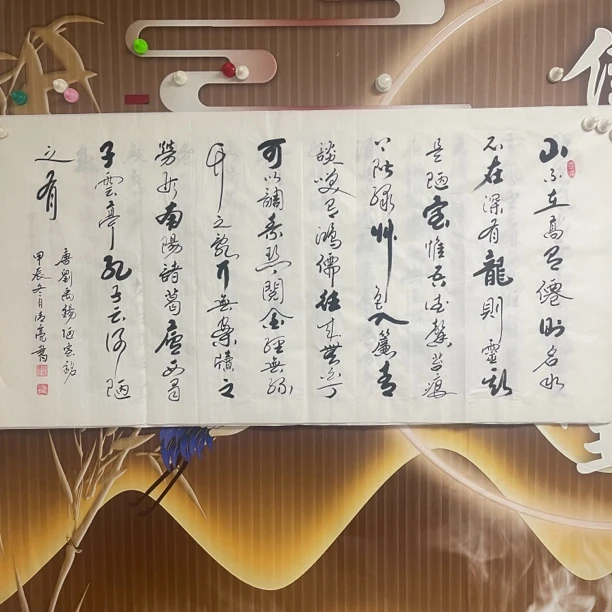 山不在高有僊則名水
不在深有龍則靈斯
是陋室惟吾德馨苔痕
上階綠艸色入簾青
談笑有鴻儒往来無白丁
可以調素琴閱金經無絲
竹之亂耳無案牘之
勞形南陽諸葛廬西蜀
子雲亭孔子云何陋
之有
唐劉禹錫陋室銘
甲辰冬月清亮書